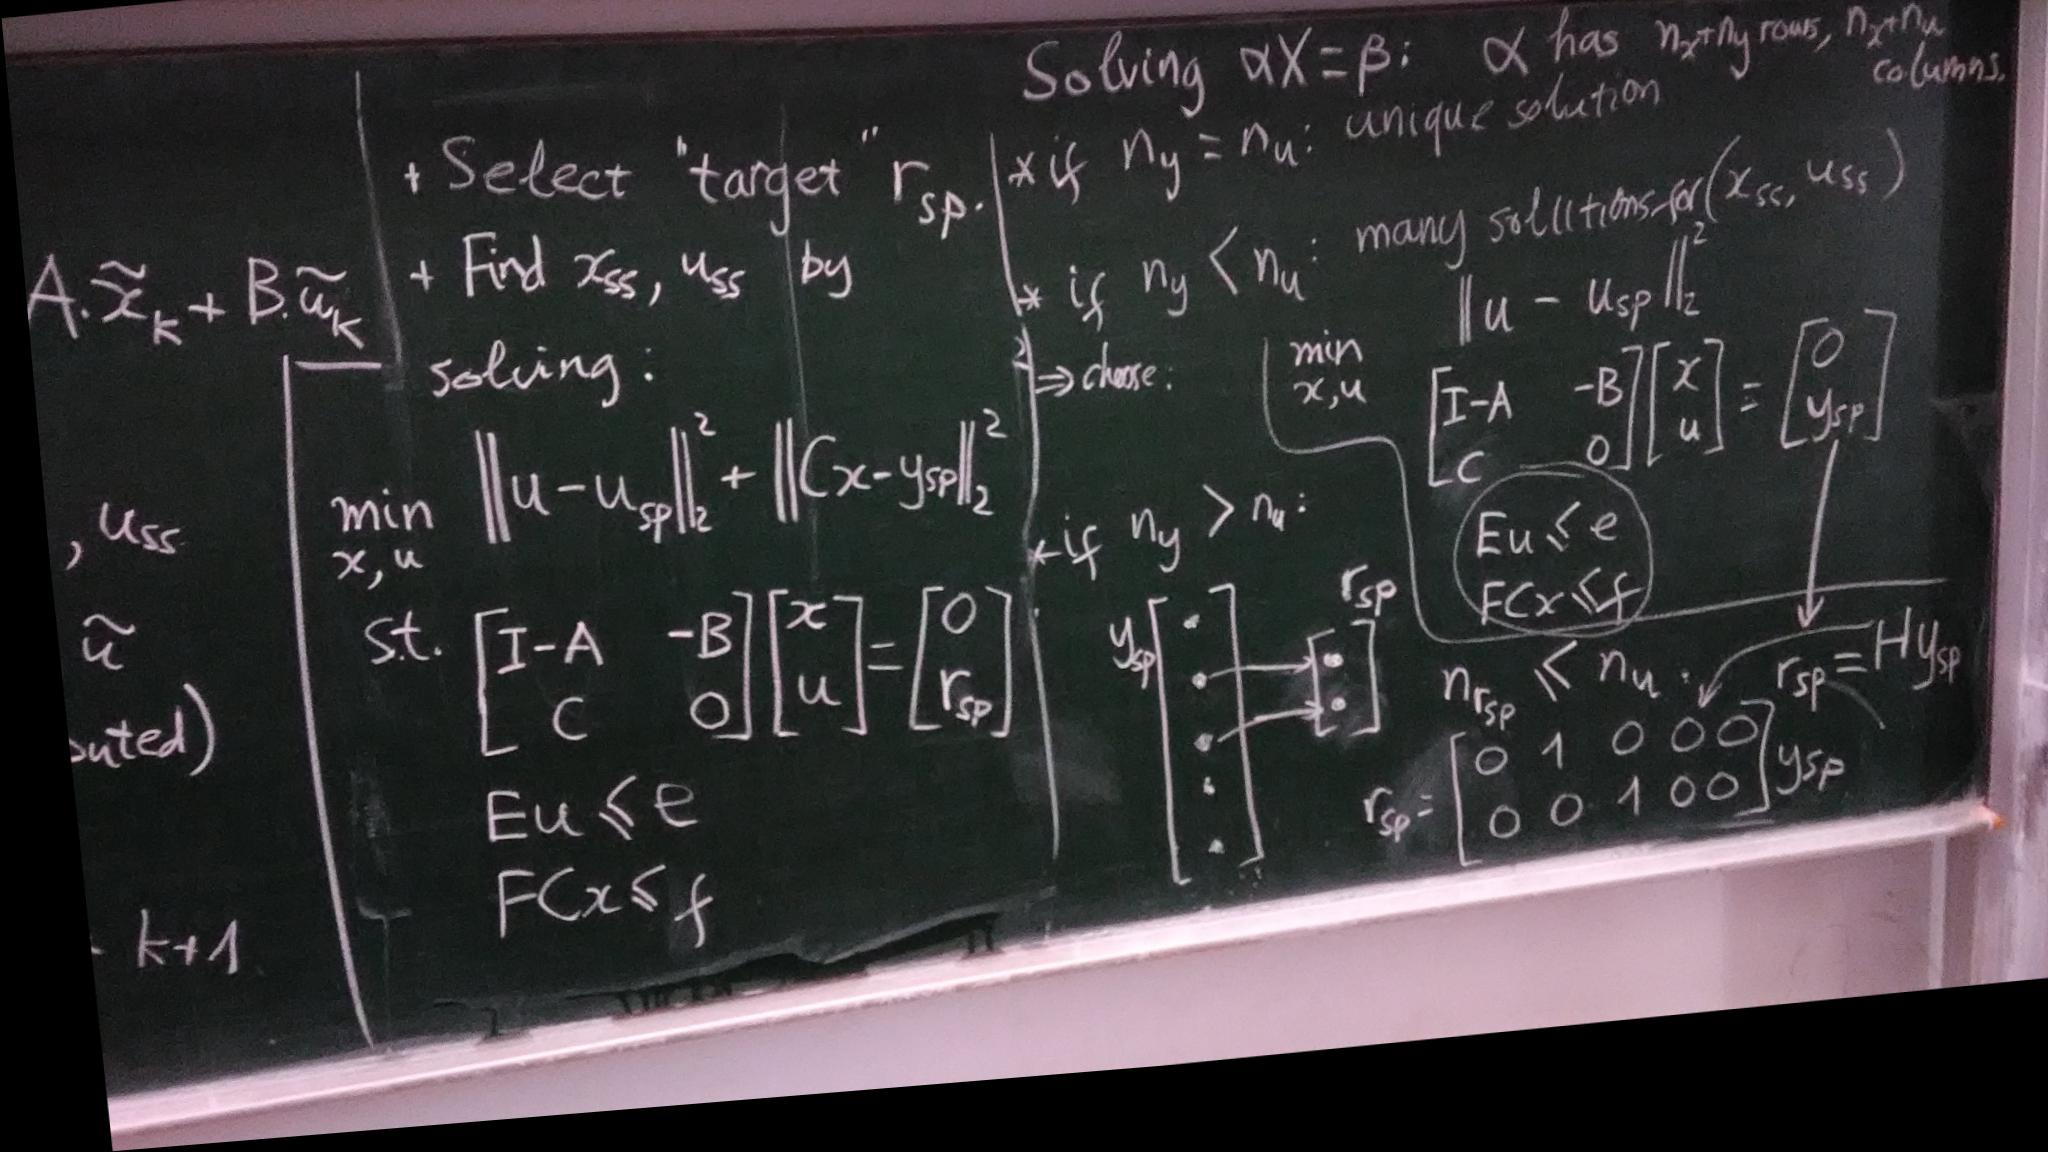 A.x̃_k + B.ũ_k
, u_ss
ũ
k+1
+ Select "target" r_sp.
+ Find x_ss, u_ss by
solving:
min x,u ‖u - u_sp‖₂² + ‖Cx - y_sp‖₂²
s.t. [I-A -B; C 0] [x; u] = [0; r_sp]
Eu ⩽ e
FCx ⩽ f
Solving αX = β: α has n_x+n_y rows, n_x+n_u columns.
* if n_y = n_u: unique solution
* if n_y < n_u: many solutions for (x_ss, u_ss)
⇒ choose: min x,u ‖u - u_sp‖₂²
[I-A -B; C 0] [x; u] = [0; y_sp]
Eu ⩽ e
FCx ⩽ f
* if n_y > n_u:
y_sp r_sp
n_r_sp ⩽ n_u. r_sp = Hy_sp
r_sp = [0 1 0 0 0; 0 0 1 0 0] y_sp